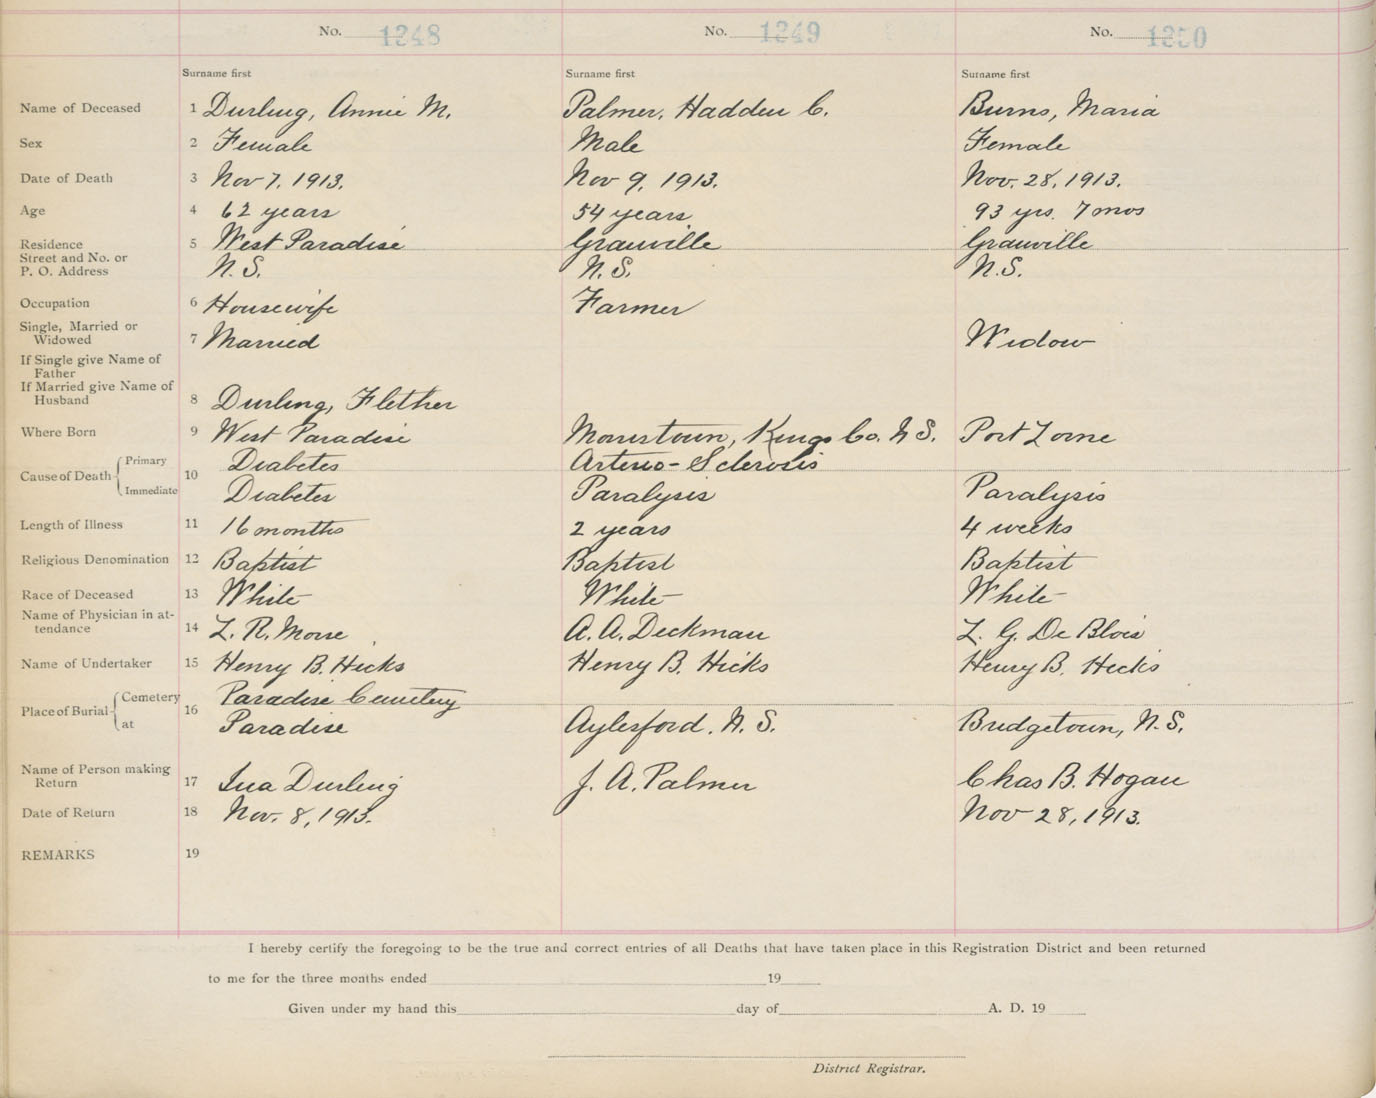 No. 1248 No. 1249 No. 1250
Surname first Surname first Surname first
Name of Deceased 1 Durling, Annie M. Palmer, Hadden C. Burns, Maria
Sex 2 Female Male Female
Date of Death 3 Nov 7, 1913. Nov 9, 1913. Nov. 28, 1913.
Age 4 62 years 54 years 93 yrs. 7 mos
Residence 5 West Paradise Granville Granville
Street and No. or
P. O. Address N.S. N.S. N.S.
Occupation 6 Housewife Farmer
Single, Married or
Widowed 7 Married Widow
If Single give Name of
Father
If Married give Name of
Husband 8 Durling, Flether
Where Born 9 West Paradise Morristown, Kings Co. N.S. Port Lorne
Cause of Death Primary 10 Diabetes Arterio-Sclerosis
Immediate Diabetes Paralysis Paralysis
Length of Illness 11 16 months 2 years 4 weeks
Religious Denomination 12 Baptist Baptist Baptist
Race of Deceased 13 White White White
Name of Physician in at-
tendance 14 L. R. Morse A. A. Deckman L. G. De Blois
Name of Undertaker 15 Henry B. Hicks Henry B. Hicks Henry B. Hicks
Place of Burial Cemetery 16 Paradise Cemetery
at Paradise Aylesford, N.S. Bridgetown, N.S.
Name of Person making
Return 17 Ina Durling J. A. Palmer Chas B. Hogan
Date of Return 18 Nov. 8, 1913. Nov 28, 1913.
REMARKS 19
I hereby certify the foregoing to be the true and correct entries of all Deaths that have taken place in this Registration District and been returned
to me for the three months ended 19
Given under my hand this day of A. D. 19
District Registrar.